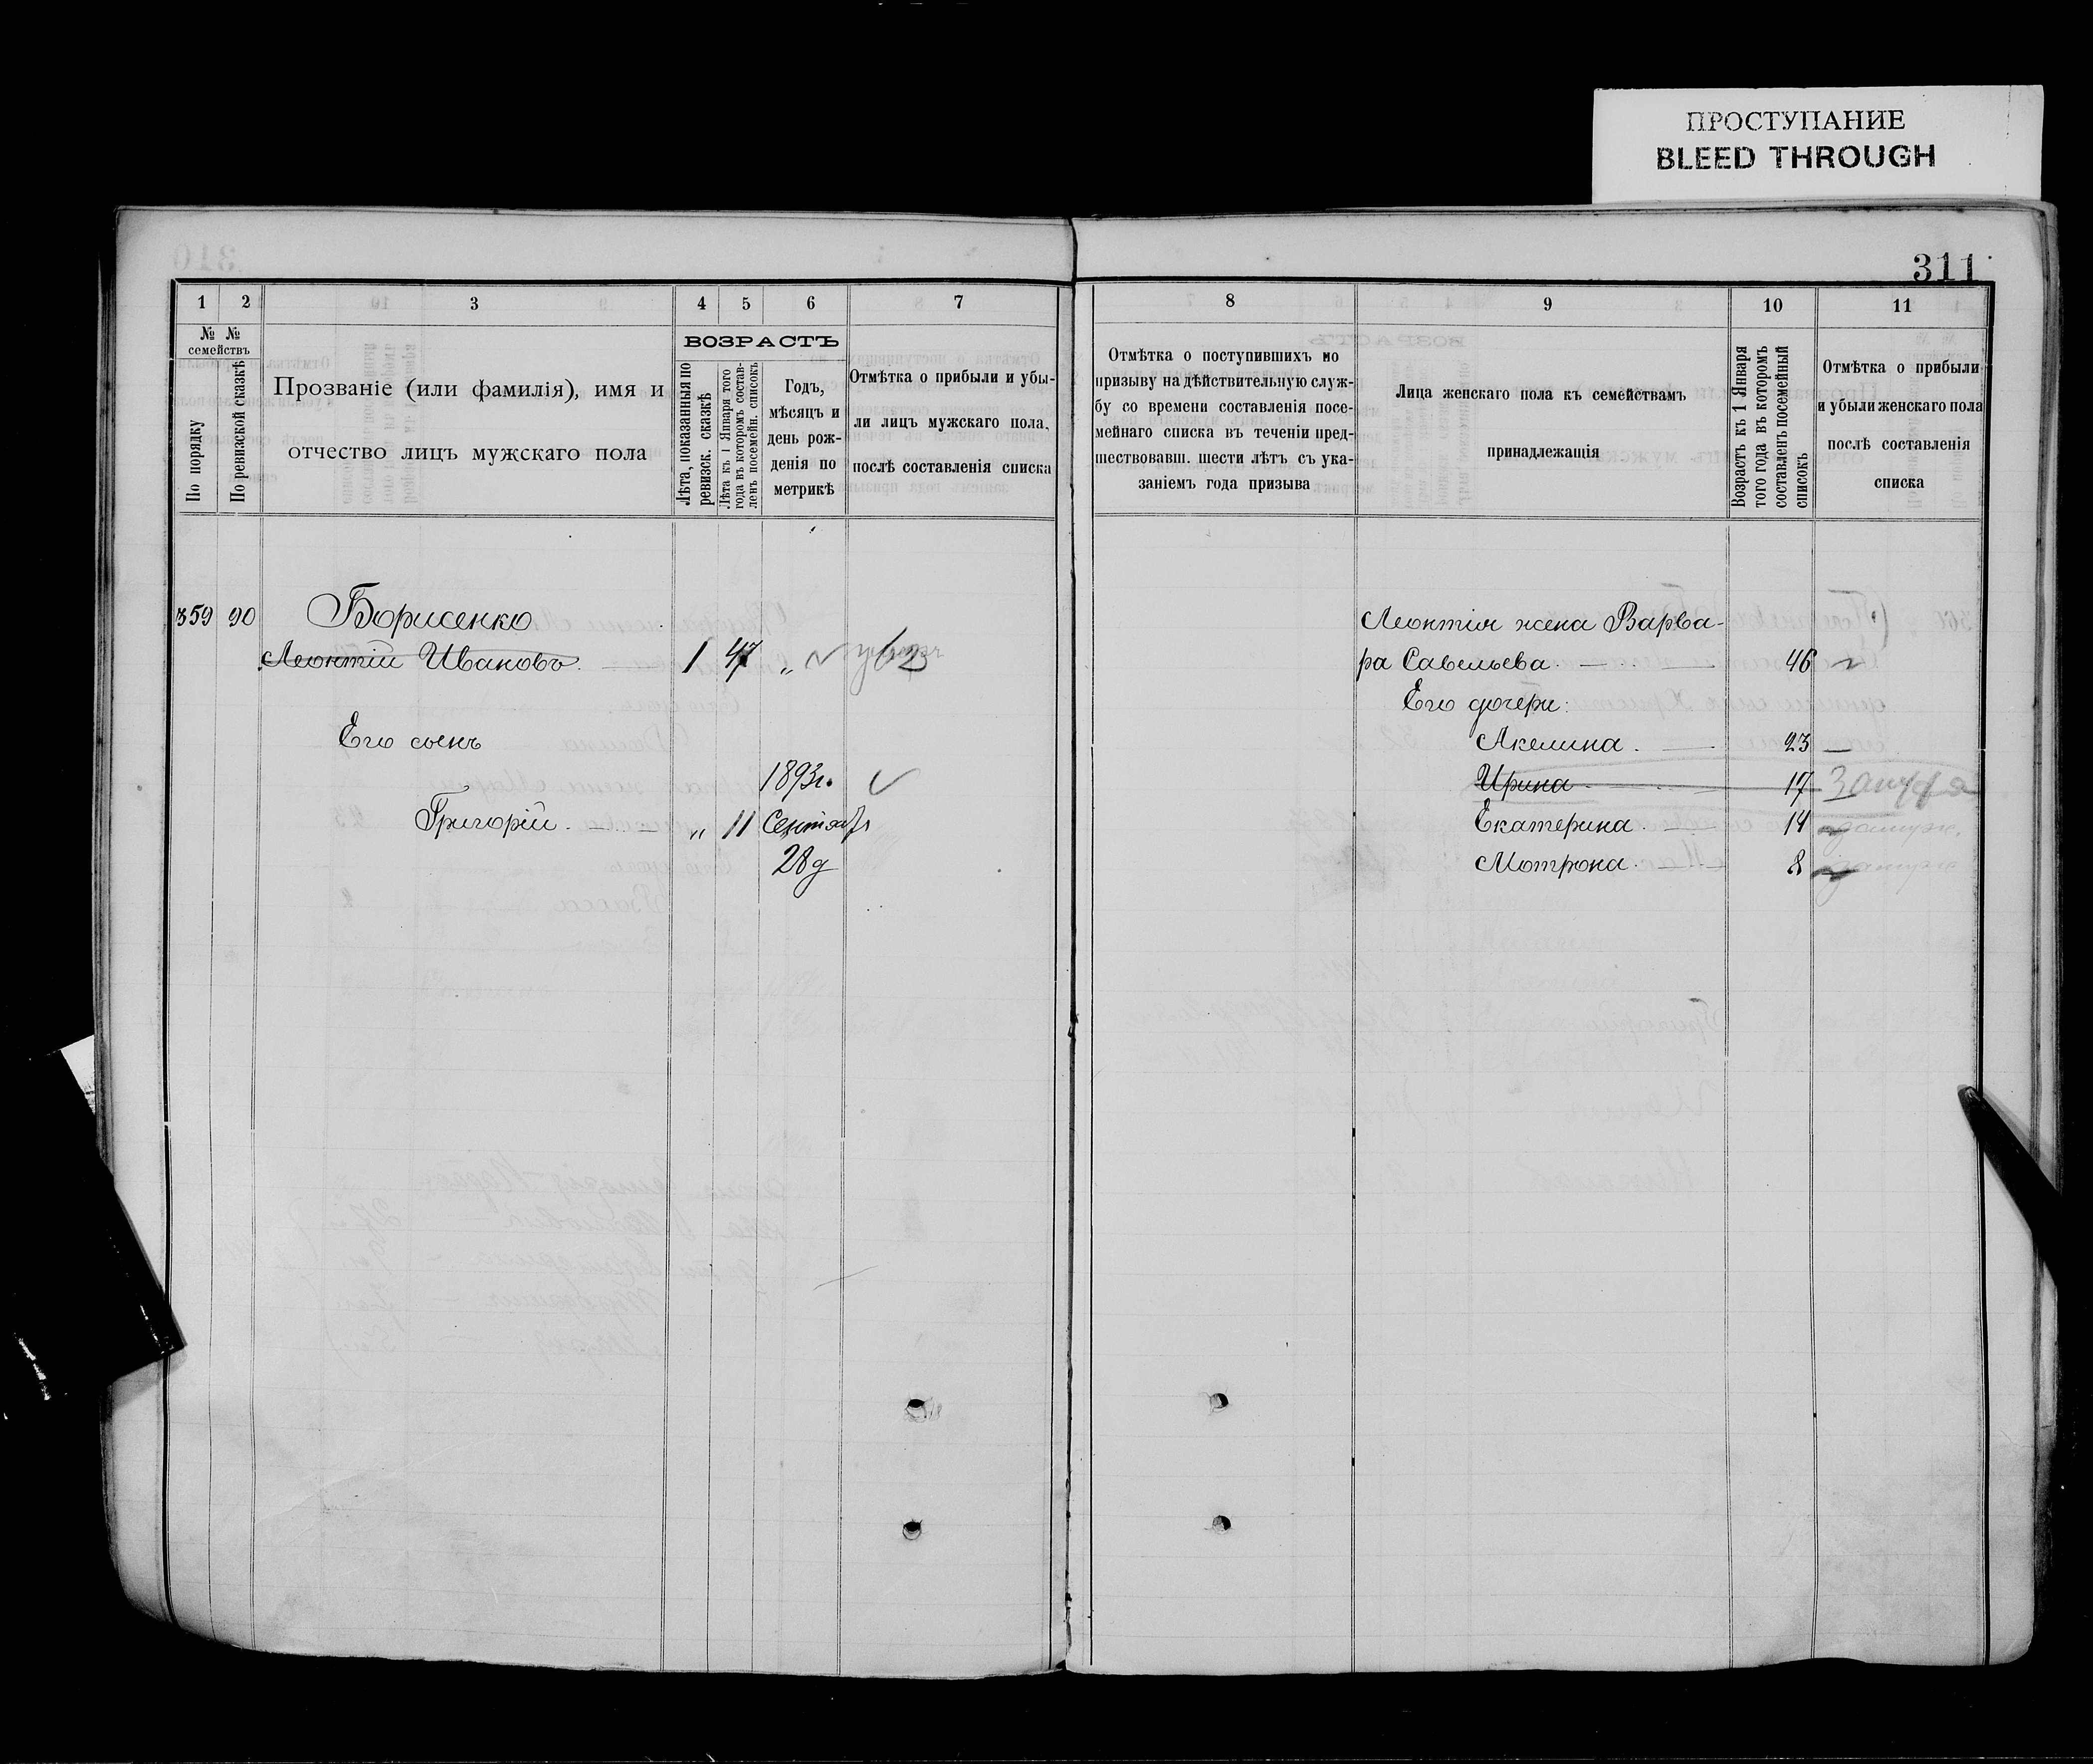 ПРОСТУПАНИЕ
BLEED THROUGH
311
1 2 3 4 5 6 7
№ № семействъ
По порядку
По ревизской сказкѣ
Прозваніе (или фамилія), имя и
отчество лицъ мужскаго пола
ВОЗРАСТЪ
Лѣта, показанныя по
ревизск. сказкѣ
Лѣта къ 1 Января того
года въ которомъ состав-
ленъ посемейн. списокъ
Годъ,
мѣсяцъ и
день рож-
денія по
метрикѣ
Отмѣтка о прибыли и убы-
ли лицъ мужскаго пола,
послѣ составленія списка
359 90 Борисенко
Леонтій Ивановъ 1 47 „
Его сынъ
1893г.
Григорій „ 11 Сентябр
28 д
8 9 10 11
Отмѣтка о поступившихъ по
призыву на дѣйствительную служ-
бу со времени составленія посе-
мейнаго списка въ теченіи пред-
шествовавш. шести лѣтъ съ ука-
заніемъ года призыва
Лица женскаго пола къ семействамъ
принадлежащія
Возрастъ къ 1 Января
того года въ которомъ
составленъ посемейный
списокъ
Отмѣтка о прибыли
и убыли женскаго пола
послѣ составленія
списка
Леонтія жена Варва-
ра Савельева 46
Его дочери:
Акелина 23
Ирина 17
Екатерина 14 замуж.
Мотрона 8 замуж